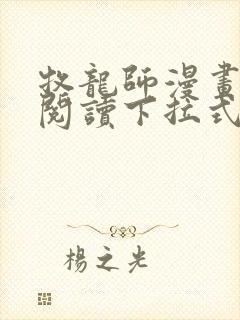 牧龍師漫畫
閱讀下拉式
楊之光